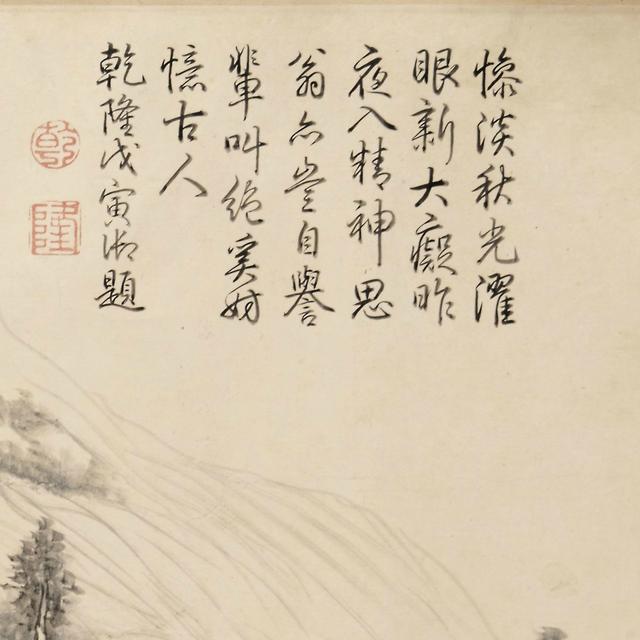 慘淡秋光濯
眼新大癡昨
夜入精神思
翁亦豈自譽
輩叫絕實
憶古人
乾隆戊寅御題
乾
隆